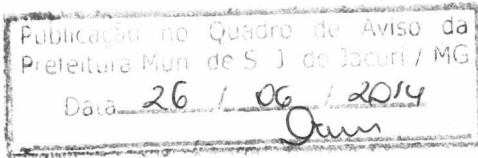 Publicação no Quadro de Aviso da
Prefeitura Mun de S J do Jacuri / MG
Data 26 / 06 / 2014